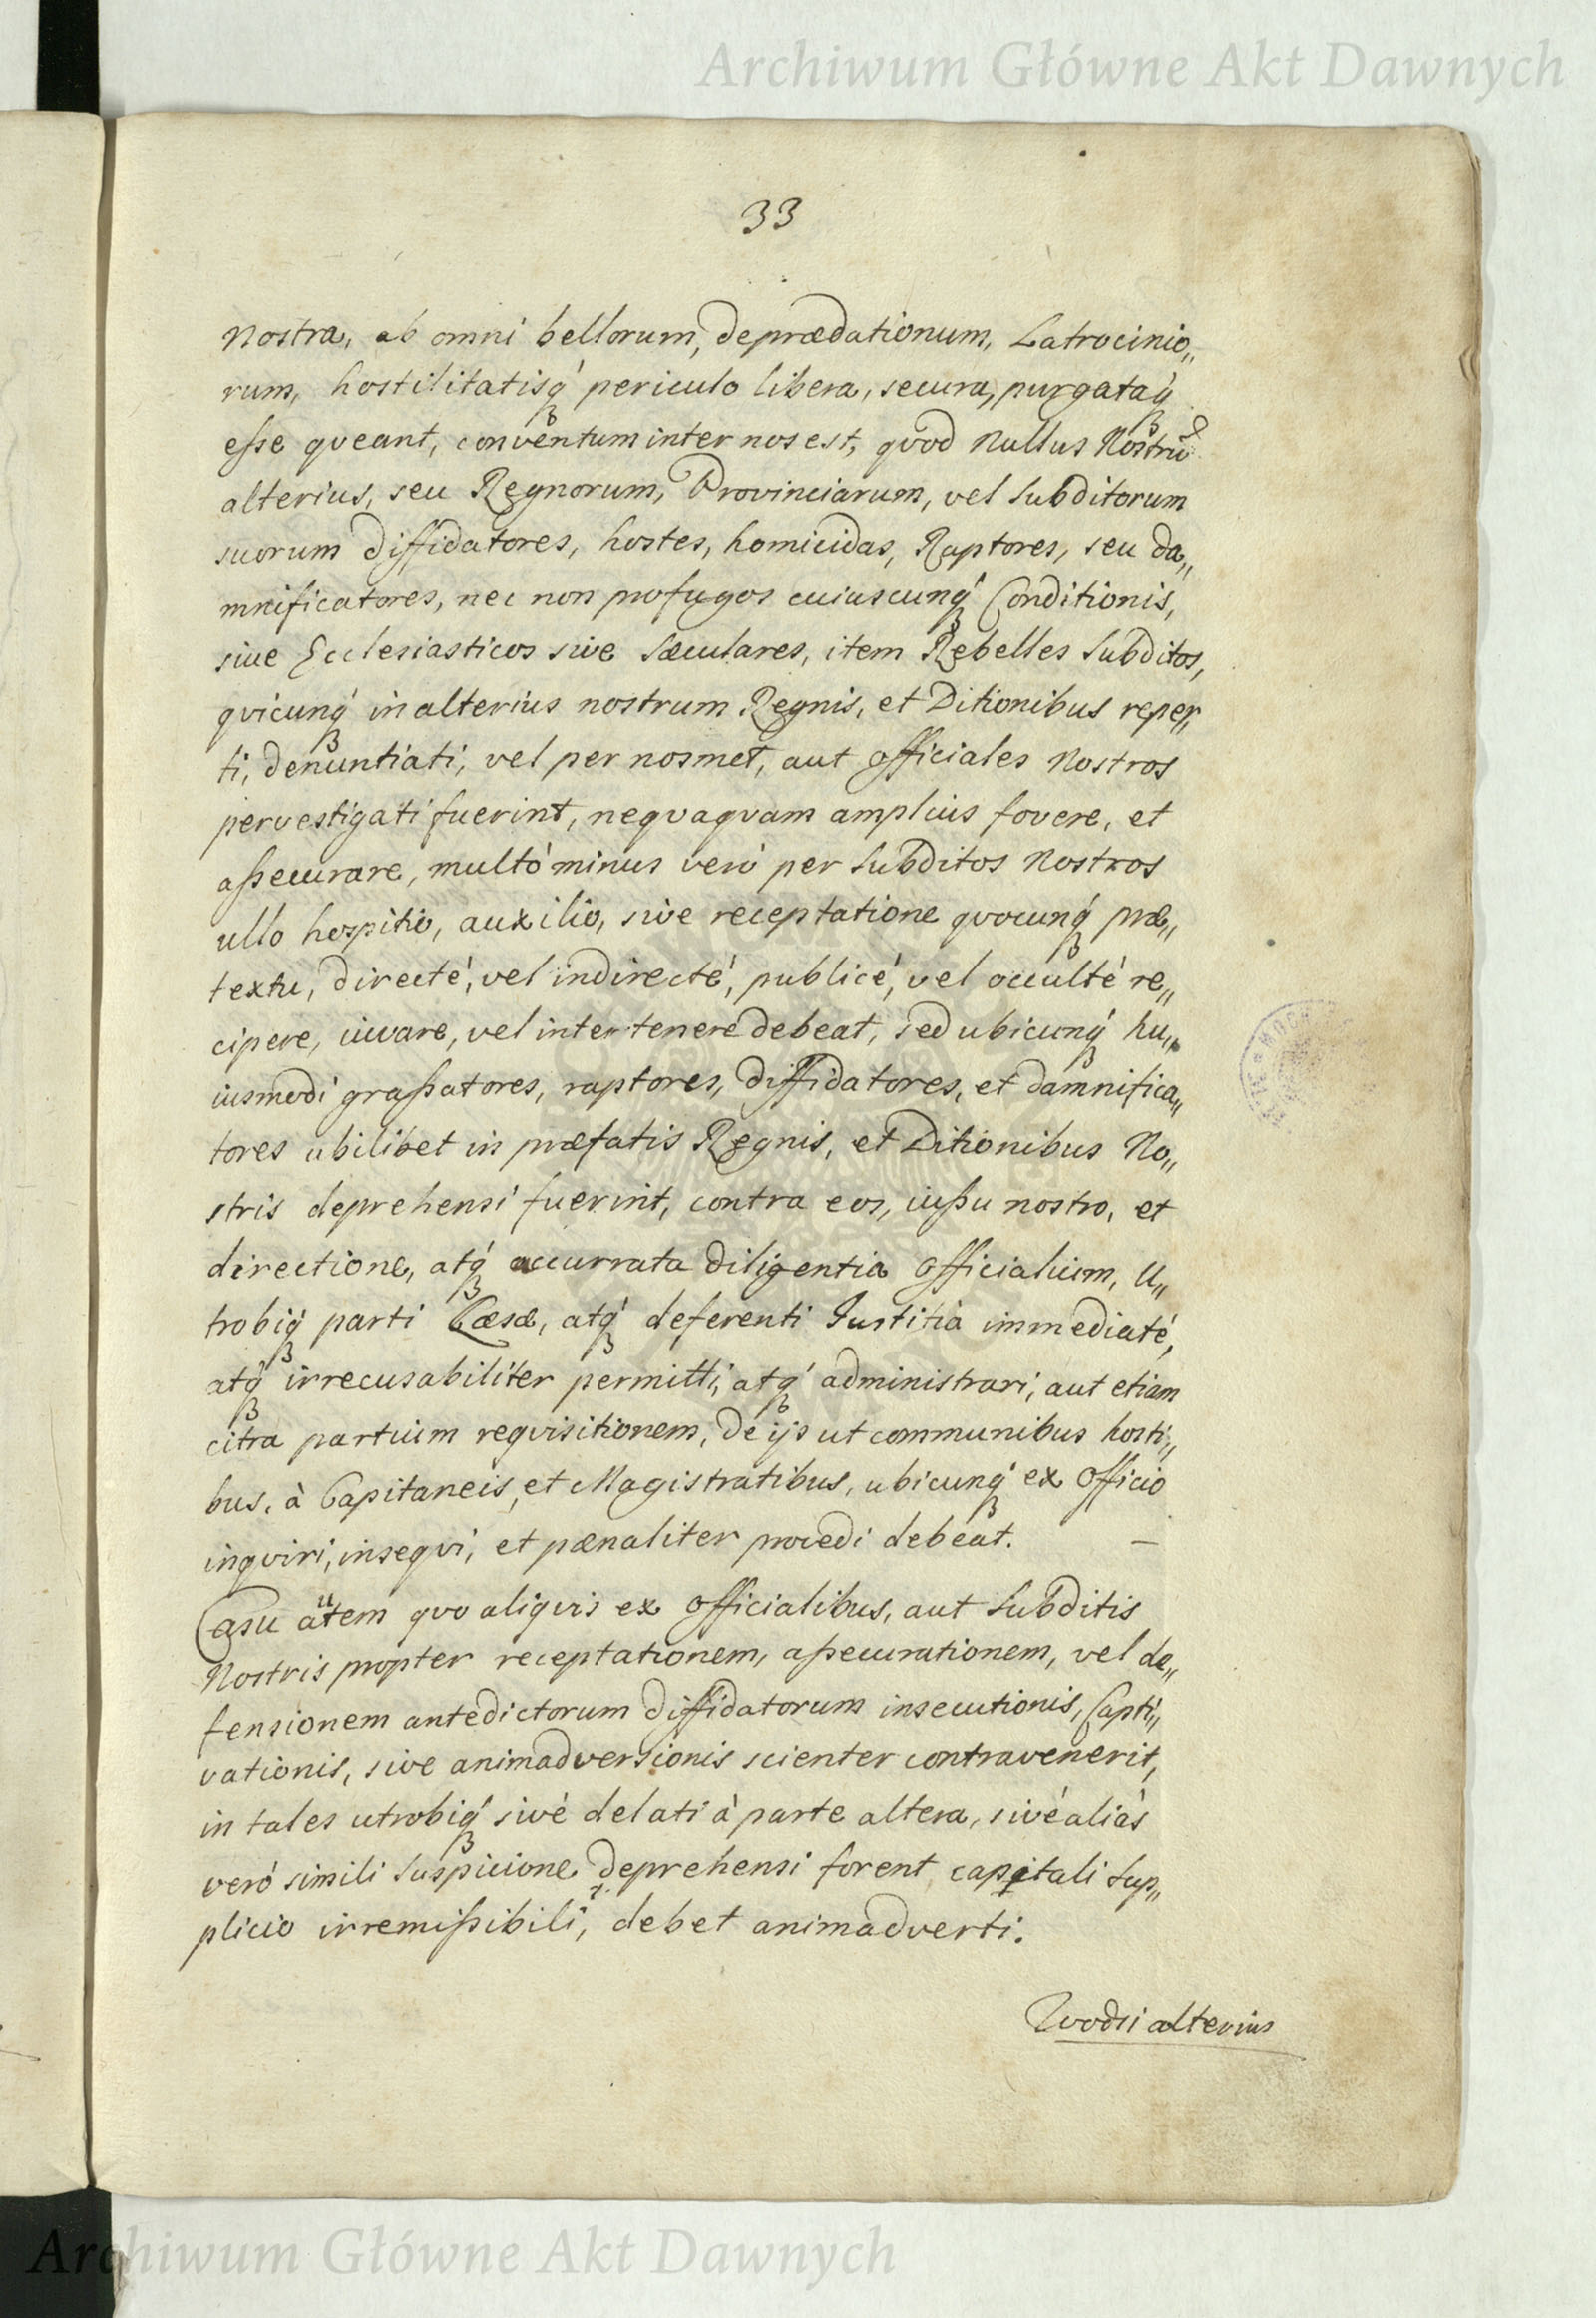 Archiwum Główne Akt Dawnych
33
Nostra, ab omni bellorum, deprædationum, Latrocinio„
rum, hostilitatisq́ꝫ periculo libera, secura, purgataq́ꝫ
eſse qveant, conventum inter nos est, qvod Nullus Nostrũ
alterius, seu Regnorum, Provinciarum, vel Subditorum
suorum diffidatores, hostes, homicidas, Raptores, seu da„
mnificatores, nec non profugos cuiuscunq́ꝫ Conditionis,
siue Ecclesiasticos sive Sæculares, item Rebelles Subditos,
qvicunq́ꝫ in alterius nostrum Regnis, et Ditionibus reper„
ti, denuntiati, vel per nosmet, aut Officiales Nostros
pervestigati fuerint, neqvaqvam amplius fovere, et
aſsecurare, multó minus veró per Subditos Nostros
ullo hospitio, auxilio, sive receptatione qvocunq́ꝫ præ„
textu, directé, vel indirecté, publicé, vel occulté re„
cipere, iuvare, vel intertenere debeat, sed ubicunq́ꝫ hu„
iusmodi graſsatores, raptores, diffidatores, et damnifica„
tores ubilibet in præfatis Regnis, et Ditionibus No„
stris deprehensi fuerint, contra eos, iuſsu nostro, et
directione, atq́ꝫ accurrata diligentia Officialium, U„
trobiq́ꝫ parti Læsæ, atq́ꝫ deferenti Iustitia immediaté,
atq́ꝫ irrecusabiliter permitti, atq́ꝫ administrari, aut etiam
citra partium reqvisitionem, de ijs ut communibus hosti„
bus, à Capitaneis, et Magistratibus, ubicunq́ꝫ ex Officio
inqviri, inseqvi, et pænaliter procedi debeat. —
Casu autem qvo aliqvis ex Officialibus, aut Subditis
Nostris propter receptationem, aſsecurationem, vel de„
fensionem antedictorum diffidatorum insecutionis, Capti„
vationis, sive animadversionis scienter contravenerit,
in tales utrobiq́ꝫ sivé delati à parte altera, sivé aliàs
veró simili Suspicione deprehensi forent, capitali Sup„
plicio irremiſsibili, debet animadverti.
Qvodsi alterius
Archiwum Główne Akt Dawnych